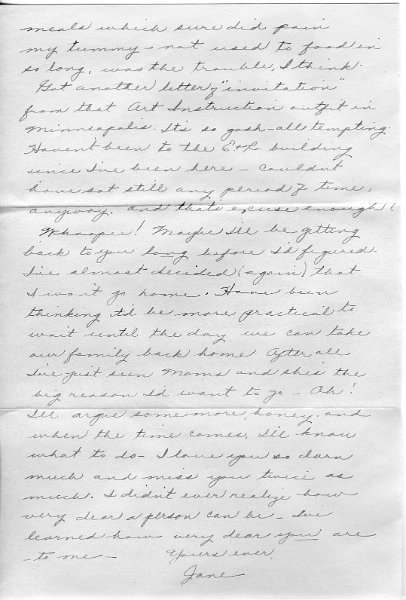 meals which sure did pain
my tummy - not used to food in
so long, was the trouble, I think.
Got another letter of "invitation"
from that Art Instruction outfit in
Minneapolis. It's so gosh-all tempting.
Haven't been to the E&R building
since I've been here - couldn't
have sat still any period of time,
anyway, and that's excuse enough!
Whoopee! Maybe I'll be getting
back to you long before I'd figured.
I've almost decided (again) that
I won't go home. Have been
thinking it'd be more practical to
wait until the day we can take
our family back home. After all
I've just seen Moms and she's the
big reason I'd want to go - Ah!
I'll argue some more, honey, and
when the time comes, I'll know
what to do - I love you so darn
much and miss you twice as
much. I didn't ever realize how
very dear a person can be. I've
learned how very dear you are
- to me - Yours ever,
Jane